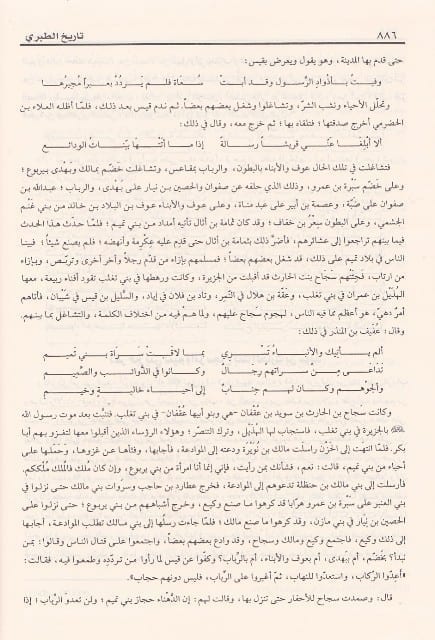 ٨٨٦ تاريخ الطبري
حتى قدم بها المدينة، وهو يقول ويعرض بقيس:
وفيت بأذواد الرسول وقد أبت سعاة فلم يردد بعيراً مجيرها
وتحلل الأحياء ونشب الشر، وتشاغلوا وشغل بعضهم بعضاً. ثم ندم قيس بعد ذلك، فلما أظله العلاء بن
الحضرمي أخرج صدقتها؛ فتلقاه بها؛ ثم خرج معه، وقال في ذلك:
ألا أبلغا عني قريشاً رسالة إذا ما أتتها بينات الودائع
فتشاغلت في تلك الحال عوف والأبناء بالبطون، والرباب بمقاعس، وتشاغلت خضم بمالك وبهدى بيربوع؛
وعلى خضم سبرة بن عمرو، وذلك الذي حلفه عن صفوان والحصين بن نيار على بهدى، والرباب؛ عبدالله بن
صفوان على ضبة، وعصمة بن أبير على عبد مناة، وعلى عوف والأبناء عوف بن البلاد بن خالد من بني غنم
الجشمي، وعلى البطون سعر بن خفاف؛ وقد كان ثمامة بن أثال تأتيه أمداد من بني تميم؛ فلما حدث هذا الحدث
فيما بينهم تراجعوا إلى عشائرهم، فأضر ذلك بثمامة بن أثال حتى قدم عليه عكرمة وأنهضه؛ فلم يصنع شيئاً؛ فبينا
الناس في بلاد تميم على ذلك، قد شغل بعضهم بعضاً؛ فمسلمهم بإزاء من قدم رجلاً وأخر أخرى وتربص، وبإزاء
من ارتاب، فجئتهم سجاح بنت الحارث قد أقبلت من الجزيرة، وكانت ورهطها في بني تغلب تقود أفناء ربيعة، معها
الهذيل بن عمران في بني تغلب، وعقة بن هلال في النمر، وتاد بن فلان في إياد، والسليل بن قيس في شيبان، فأتاهم
أمر دهي، هو أعظم مما فيه الناس، لهجوم سجاح عليهم، ولما هم فيه من اختلاف الكلمة، والتشاغل بما بينهم.
وقال؛ عفيف بن المنذر في ذلك:
ألم يأتيك والأنباء تسري بما لاقت سراة بني تميم
تداعى من سراتهم رجال وكانوا في الذوائب والصميم
وألجوهم وكان لهم جناب إلى أحياء خالية وخيم
وكانت سجاح بن الحارث بن سويد بن عقفان -هي وبنو أبيها عقفان- في بني تغلب. فتنبت بعد موت رسول الله
ﷺ بالجزيرة في بني تغلب، فاستجاب لها الهذيل، وترك التنصر؛ وهؤلاء الرؤساء الذين أقبلوا معها لتغزو بهم أبا
بكر. فلما انتهت إلى الحزن راسلت مالك بن نويرة ودعته إلى الموادعة، فأجابها، وفثأها عن غزوها، وحملها على
أحياء من بني تميم، قالت: نعم، فشأنك بمن رأيت، فإني إنما أنا امرأة من بني يربوع، وإن كان ملك فالملك ملككم.
فأرسلت إلى بني مالك بن حنظلة تدعوهم إلى الموادعة، فخرج عطارد بن حاجب وسروات بني مالك حتى نزلوا في
بني العنبر على سبرة بن عمرو هراباً قد كرهوا ما صنع وكيع، وخرج أشباههم من بني يربوع؛ حتى نزلوا على
الحصين بن نيار في بني مازن، وقد كرهوا ما صنع مالك؛ فلما جاءت رسلها إلى بني مالك تطلب الموادعة، أجابها
إلى ذلك وكيع، فاجتمع وكيع ومالك وسجاح، وقد وادع بعضهم بعضاً، واجتمعوا على قتال الناس وقالوا: بمن
نبدأ؟ بخضم، أم ببهدى، أم بعوف والأبناء، أم بالرباب؟ وكفوا عن قيس لما رأوا من تردده وطمعوا فيه، فقالت:
«أعدوا الركاب، واستعدوا للنهاب، ثم أغيروا على الرباب، فليس دونهم حجاب».
قال: وصمدت سجاح للأحفار حتى تنزل بها، وقالت لهم: إن الدهناء حجاز بني تميم؛ ولن تعدو الرباب؛ إذا